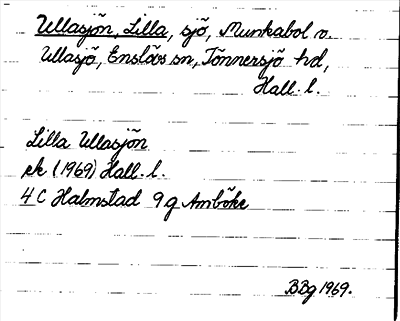 Ullasjön, Lilla, sjö, Munkabol v.
Ullasjö, Enslövs sn, Tönnersjö hd,
Hall. l.
Lilla Ullasjön
ek (1969) Hall. l.
4 C Halmstad 9 g Amböke
BBg 1969.